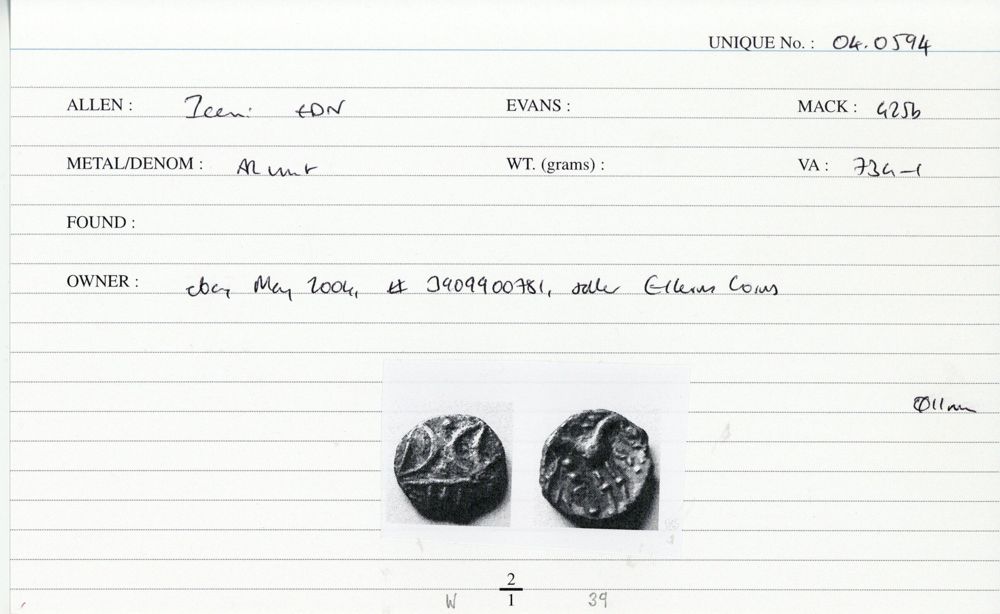 UNIQUE No. : 04.0594
ALLEN : Iceni EDN EVANS : MACK : 425b
METAL/DENOM : AR unit WT. (grams) : VA : 734-1
FOUND :
OWNER : ebay May 2004, # 3909900781, seller Elleins Coins
Ø11mm
2
1
W 39